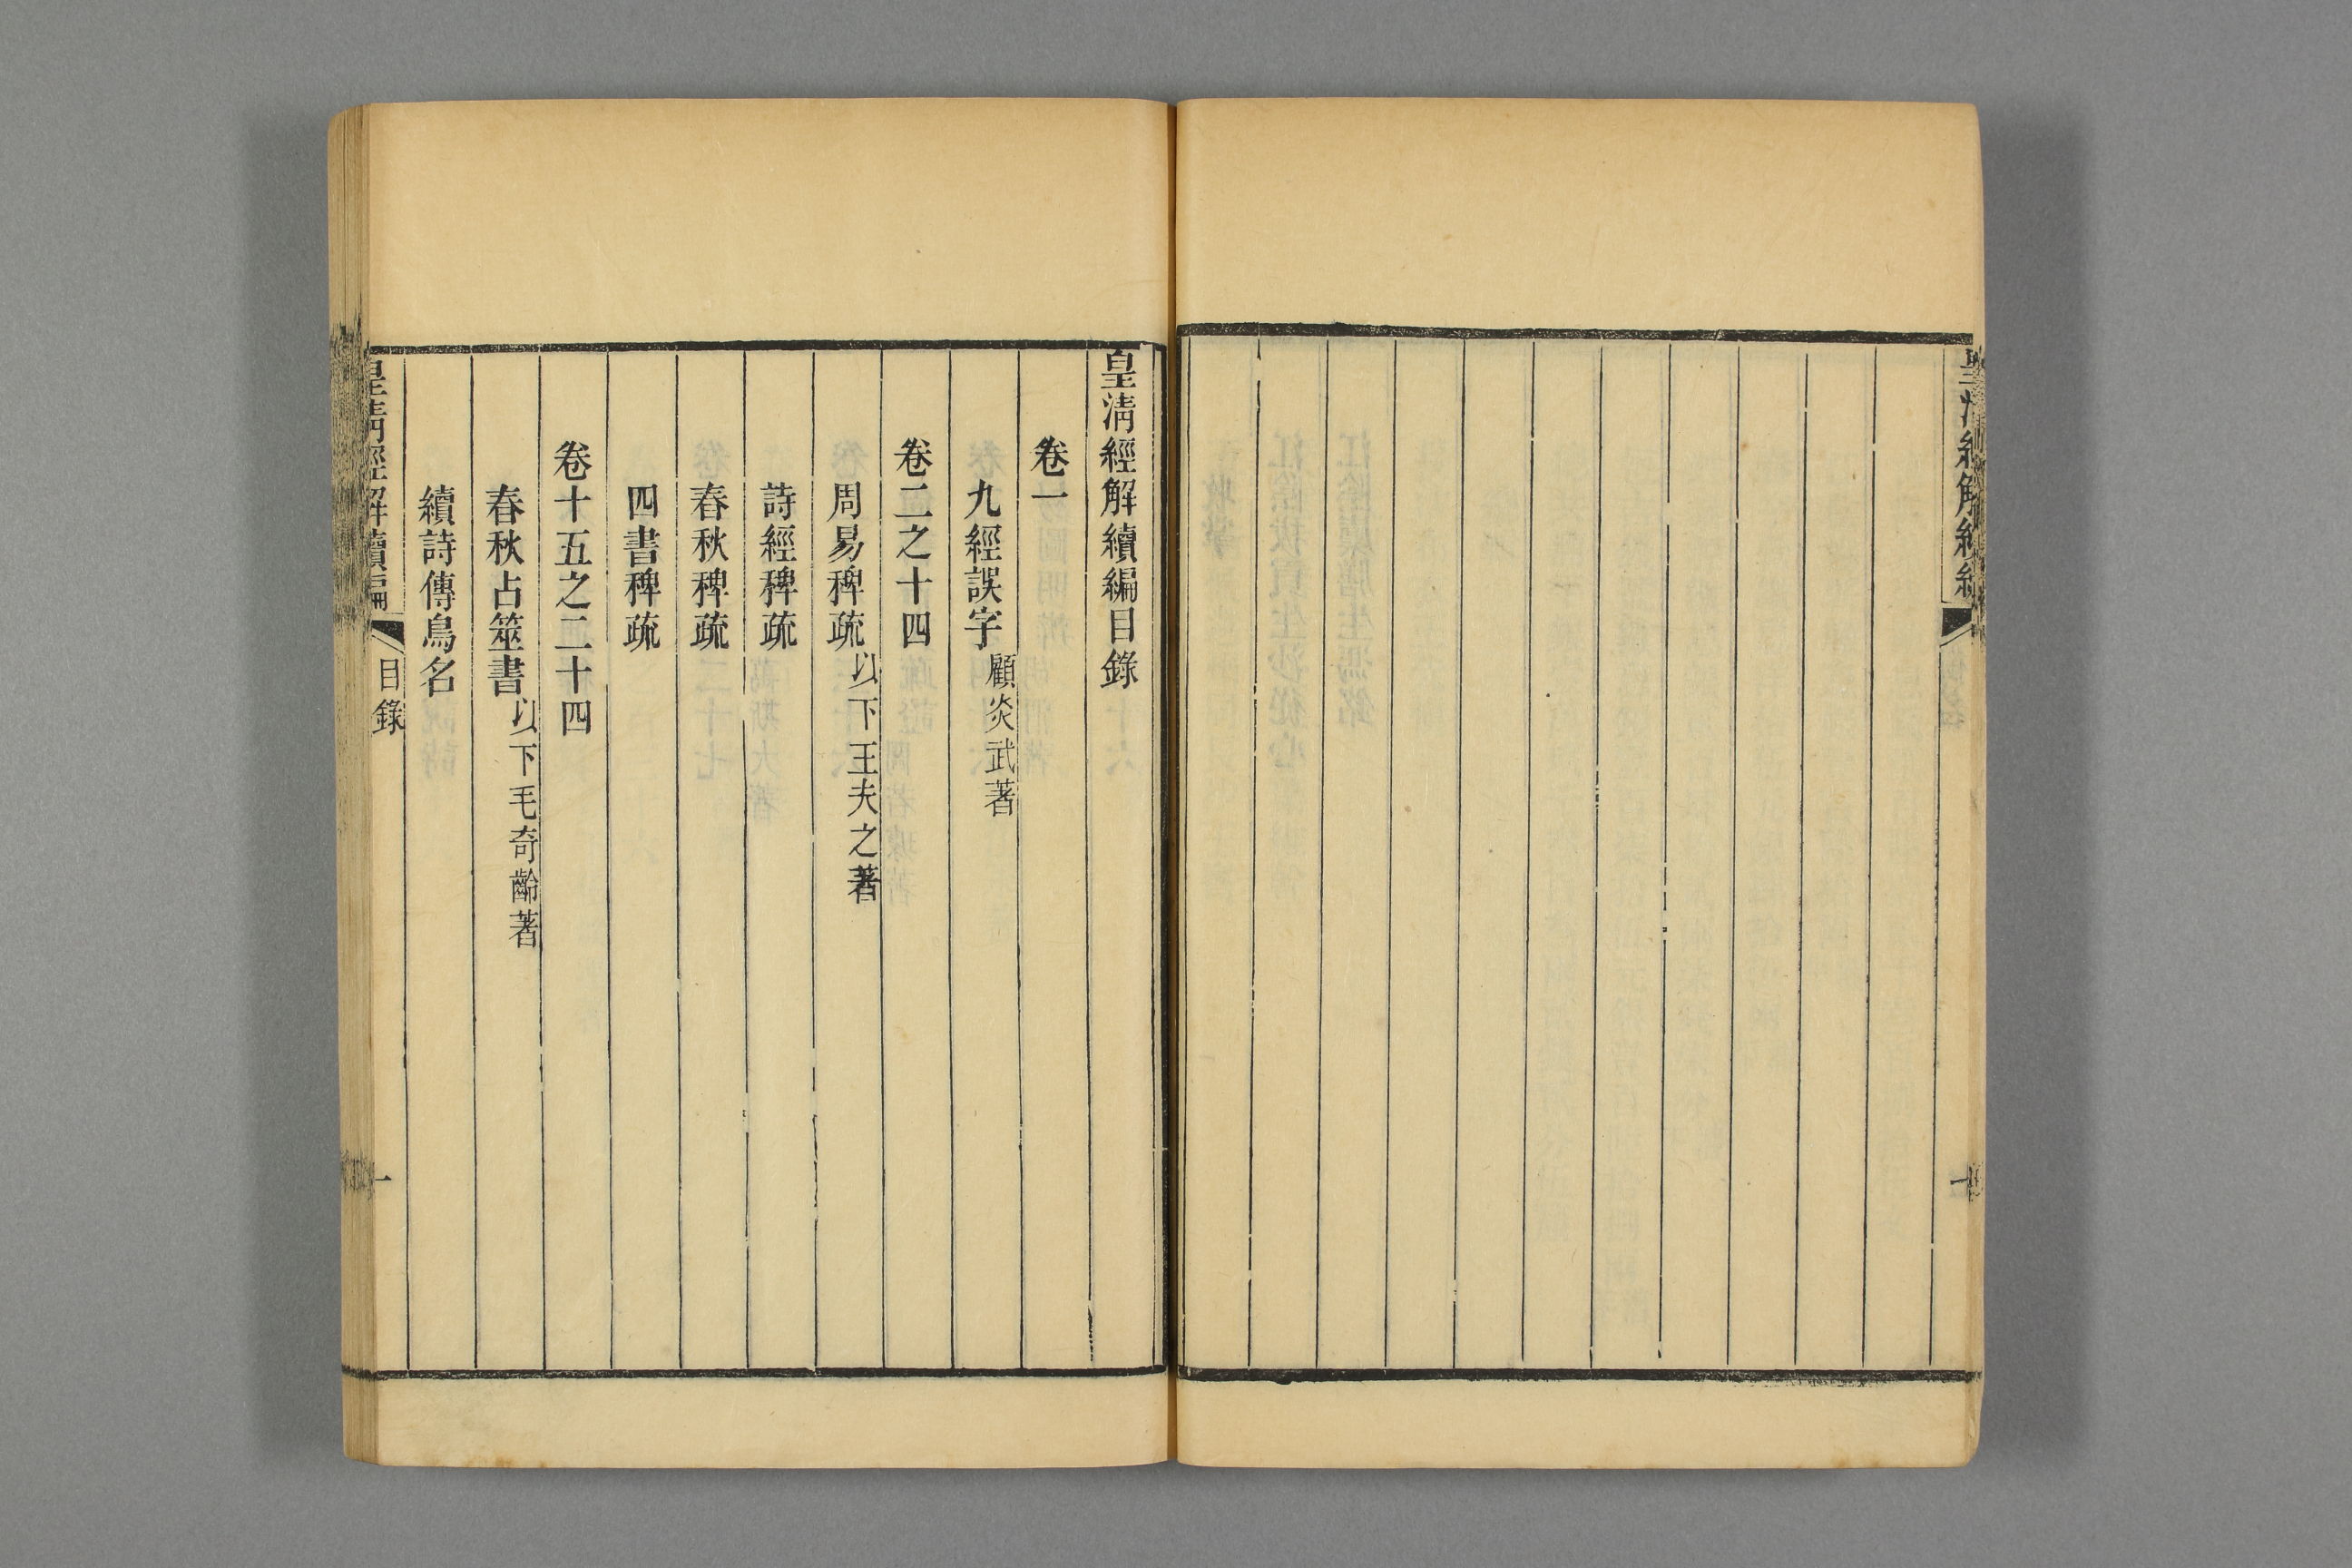 皇清經解續編
皇清經解續編目錄
卷一
九經誤字顧炎武著
卷二之十四
周易稗疏以下王夫之著
詩經稗疏
春秋稗疏
四書稗疏
卷十五之二十四
春秋占筮書以下毛奇齡著
續詩傳鳥名
皇清經解續編 目錄 一